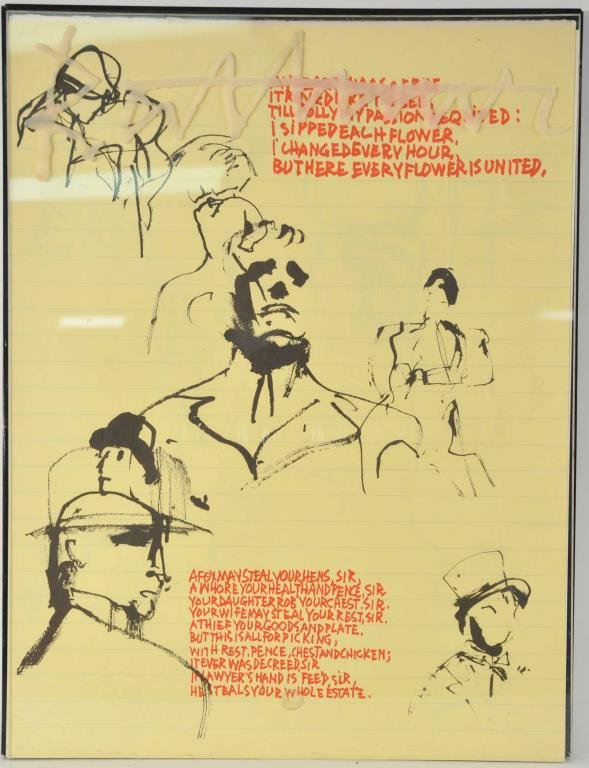 WAS SO FREE
IT ROVED LIKE
TILL POLLY MY PASSION REQUITED:
I SIPPED EACH FLOWER,
I CHANGED EVERY HOUR,
BUT HERE EVERY FLOWER IS UNITED.
A FOX MAY STEAL YOUR HENS, SIR,
A WHORE YOUR HEALTH AND PENCE, SIR
YOUR DAUGHTER ROB YOUR CHEST. SIR.
YOUR WIFE MAY STEAL YOUR REST, SIR.
A THIEF YOUR GOODS AND PLATE.
BUT THIS IS ALL FOR PICKING,
WITH REST, PENCE, CHEST AND CHICKEN;
IT EVER WAS DECREED, SIR
IF LAWYER'S HAND IS FEED, SIR,
HE STEALS YOUR WHOLE ESTATE.